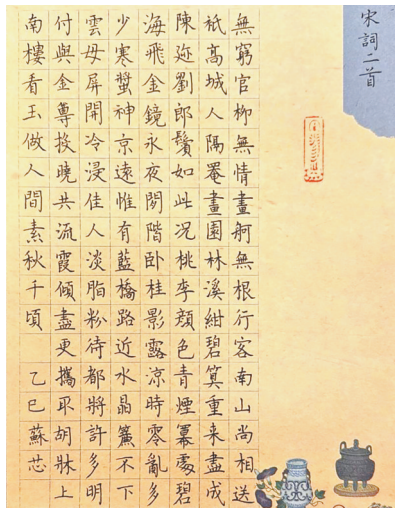 宋詞二首
無窮官柳無情畫舸無根行客南山尚相送
祗高城人隔罨畫園林溪紺碧算重来盡成
陳迹劉郎鬢如此况桃李顔色青煙冪處碧
海飛金鏡永夜閑階卧桂影露涼時零亂多
少寒螿神京遠惟有藍橋路近水晶簾不下
雲母屏開冷浸佳人淡脂粉待都將許多明
付與金尊投曉共流霞傾盡更攜取胡牀上
南樓看玉做人間素秋千頃 乙巳蘇芯